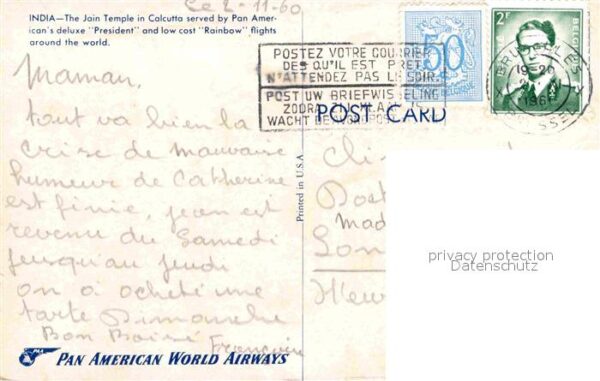 Ce 2-11-60
INDIA—The Jain Temple in Calcutta served by Pan Amer-
ican's deluxe "President" and low cost "Rainbow" flights
around the world.
Maman,
tout va bien la
crise de mauvaise
humeur de Catherine
est finie, jean est
revenu du Samedi
jusqu'au jeudi
on a acheté une
tarte Dimanche
Bon Baisé
Françoise
PAN AMERICAN WORLD AIRWAYS
Printed in U.S.A.
POST CARD
POSTEZ VOTRE COURRIER
DES QU'IL EST PRET
N'ATTENDEZ PAS LE SOIR.
POST UW BRIEFWISSELING
ZODRA
WACHT
50
BELGIQUE
2F
BELGIE
BRUXELLES
19-20
BRUSSEL
Post
Mad
Lon
privacy protection
Datenschutz